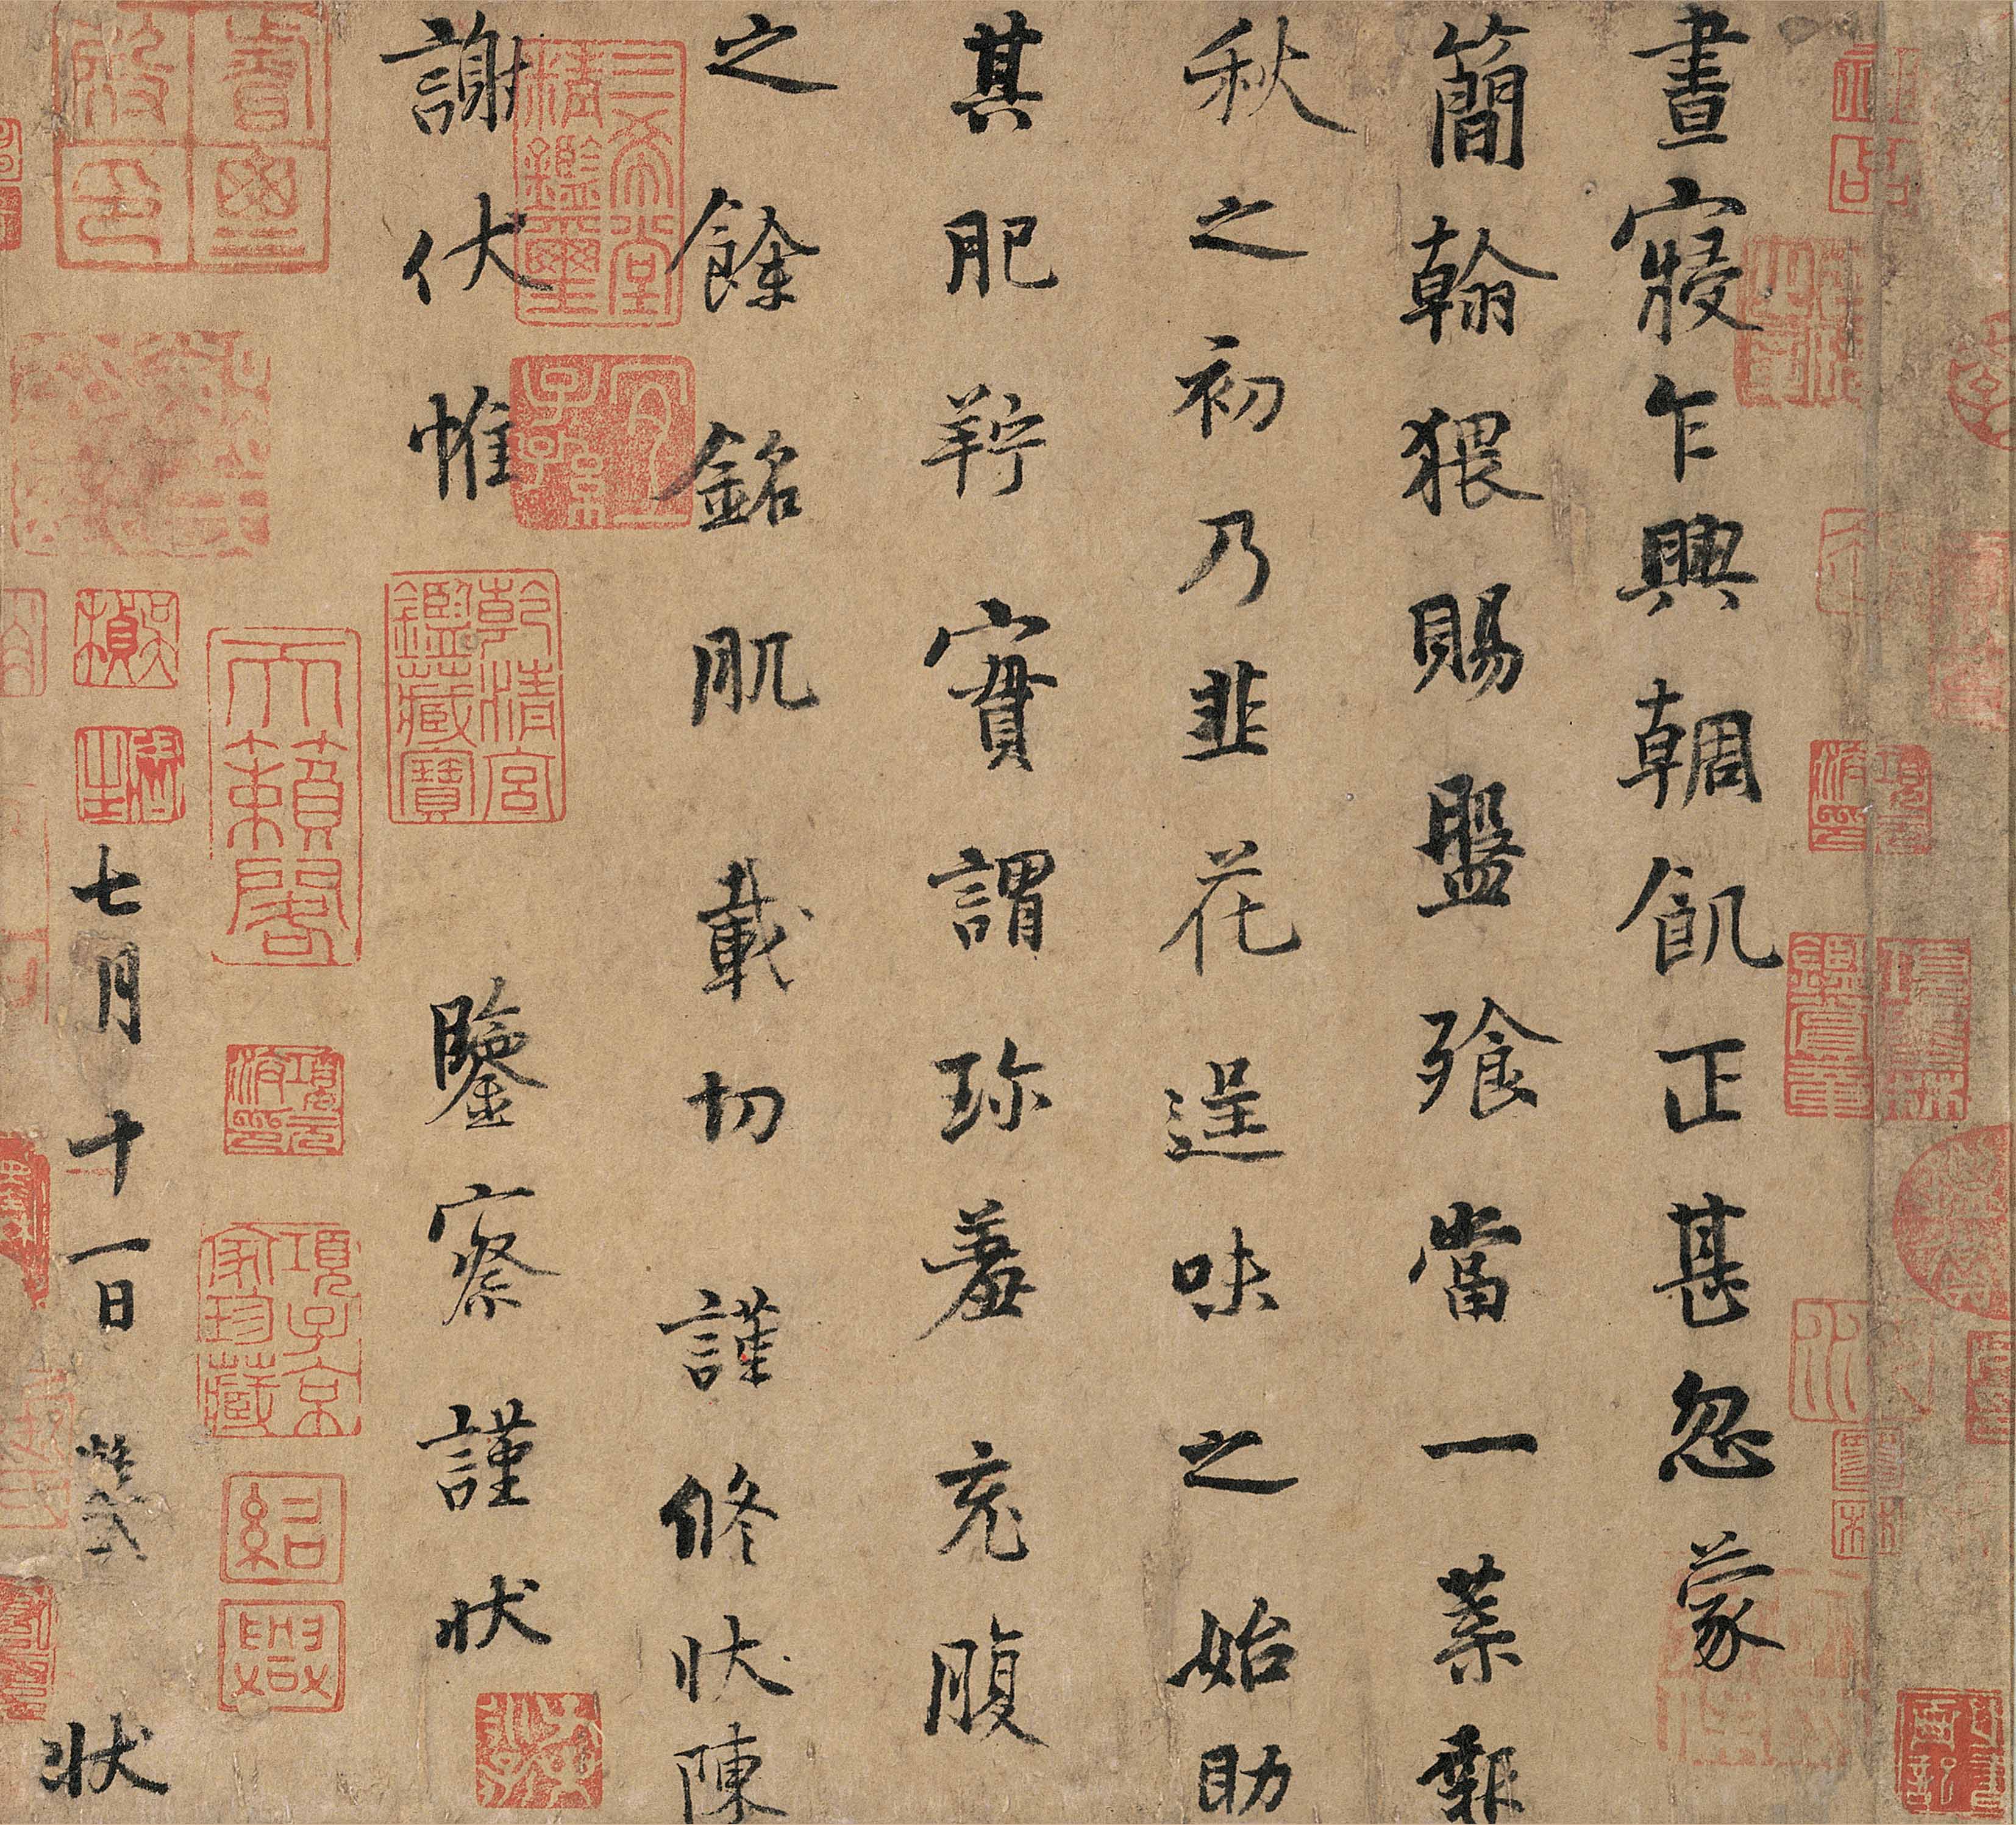 晝寢乍興輖飢正甚忽蒙
簡翰猥賜盤飧當一葉報
秋之初乃韭花逞味之始助
其肥羜實謂珍羞充腹
之餘銘肌載切謹脩狀陳
謝伏惟 鑒察謹狀
七月十一日 狀
三希堂精鑑璽
宜子孫
乾清宮鑑藏寶
天籟閣
項元汴印
項子京家珍藏
紹興